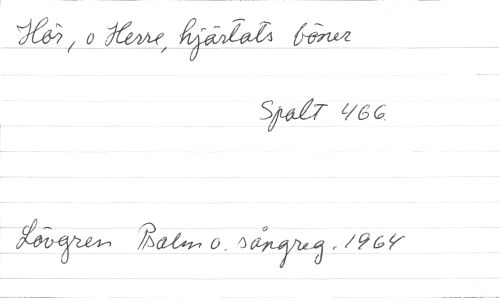 Hör, o Herre, hjärtats böner
Spalt 466.
Lövgren Psalm o. sångreg. 1964